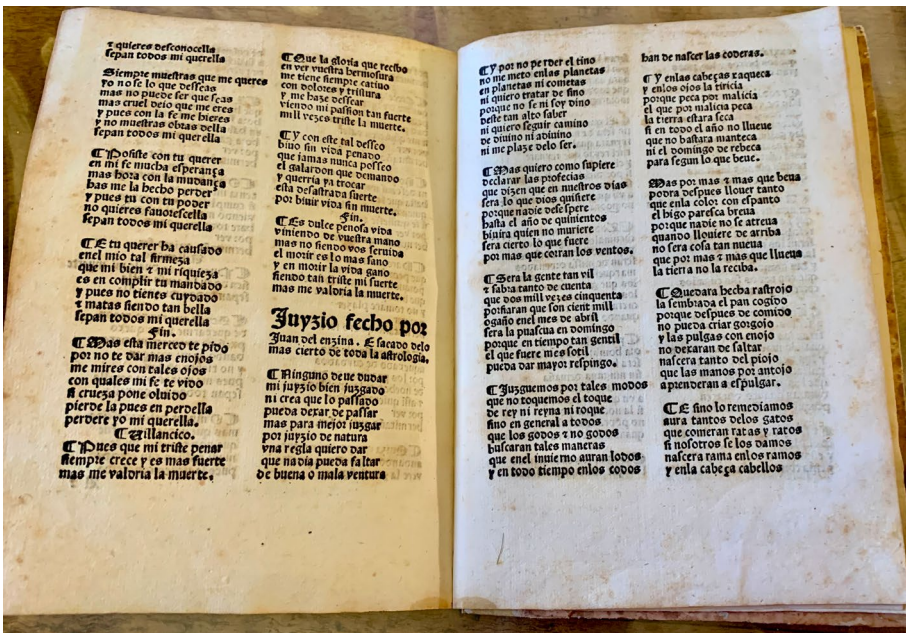 ⁊ quieres desconocella
sepan todos mi querella
Siempre muestras que me queres
yo no se lo que desseas
mas no puede ser que seas
mas cruel delo que me eres
y pues con la fe me hieres
y no muestras obras della
sepan todos mi querella
¶ Posiste con tu querer
en mi fe mucha esperança
mas hora con la mudança
has me la hecho perder
y pues tu con tu poder
no quieres fauorescella
sepan todos mi querella
¶ E tu querer ha causado
enel mio tal firmeza
que mi bien ⁊ mi riqueza
es en complir tu mandado
y pues no tienes cuydado
⁊ matas siendo tan bella
sepan todos mi querella
Fin.
¶ Mas esta merced te pido
por no te dar mas enojos
me mires con tales ojos
con quales mi fe te vido
si crueza pone oluido
pierde la pues en perdella
perdere yo mi querella.
¶ Uillancico.
¶ Pues que mi triste penar
siempre crece y es mas fuerte
mas me valdria la muerte.
¶ Que la gloria que recibo
en ver vuestra hermosura
me tiene siempre catiuo
con dolores y tristura
y me haze dessear
viendo mi passion tan fuerte
mill vezes triste la muerte.
¶ Y con este tal desseo
biuo sin vida penado
que jamas nunca posseo
el galardon que demando
y querria ya trocar
esta desastrada suerte
por biuir vida sin muerte.
Fin.
¶ Es dulce penosa vida
viniendo de vuestra mano
mas no siendo vos seruida
el morir es lo mas sano
y en morir la vida gano
siendo tan triste mi suerte
mas me valdria la muerte.
Juyzio fecho por
Juan del enzina. E sacado delo
mas cierto de toda la astrologia.
¶ Ninguno deue dudar
mi juyzio bien juzgado
ni crea que lo passado
pueda dexar de passar
mas para mejor juzgar
por juyzio de natura
vna regla quiero dar
que nadia pueda faltar
de buena o mala ventura
¶ Y por no perder el tino
no me meto enlas planetas
en planetas ni cometas
ni quiero tratar de fino
porque no se ni soy dino
deste tan alto saber
ni quiero seguir camino
de diuino ni adiuino
ni me plaze delo ser.
¶ Mas quiero como supiere
declarar las profecias
que dizen que en nuestros dias
sera lo que dios quisiere
porque nadie desespere
hasta el año de quinientos
biuira quien no muriere
sera cierto lo que fuere
por mas que corran los ventos.
¶ Sera la gente tan vil
⁊ sabra tanto de cuenta
que dos mill vezes cinquenta
porfiaran que son cient mill
ogaño enel mes de abril
sera la pascua en domingo
porque en tiempo tan gentil
el que fuere mes sotil
pueda dar mayor respingo.
¶ Juzguemos por tales modos
que no toquemos el toque
de rey ni reyna ni roque
sino en general a todos
que los godos y no godos
buscaran tales maneras
que enel inuierno auran lodos
y en todo tiempo enlos codos
han de nascer las coderas.
¶ Y enlas cabeças raqueca
y enlos ojos la tiricia
porque peca por malicia
el que por malicia peca
la tierra estara seca
si en todo el año no llueue
que no bastara manteca
ni el domingo de rebeca
para segun lo que beue.
Mas por mas ⁊ mas que beua
podra despues llouer tanto
que enla color con espanto
el higo paresca breua
porque nadie no se atreua
quando llouiere de arriba
no sera cosa tan nueua
que por mas ⁊ mas que llueua
la tierra no la reciba.
¶ Quedara hecha rastrojo
la sembrada el pan cogido
porque despues de comido
no pueda criar gorgojo
y las pulgas con enojo
no dexaran de saltar
nascera tanto del piojo
que las manos por antojo
aprenderan a espulgar.
¶ E sino lo remediamos
aura tantos delos gatos
que comeran ratas y ratos
si nosotros se los damos
nascera rama enlos ramos
y enla cabeça cabellos